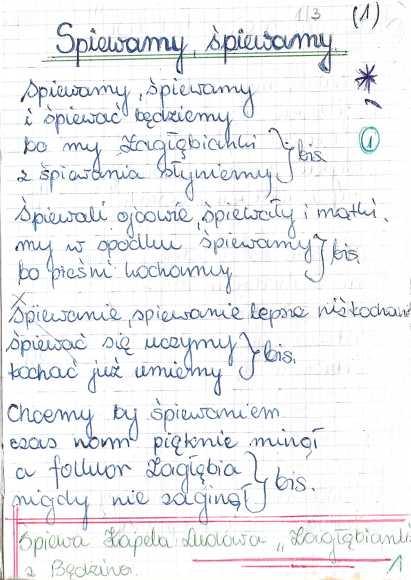 1/3 (1)
Śpiewamy, śpiewamy.
Śpiewamy, śpiewamy
i śpiewać będziemy
bo my Zagłębianki } bis
z śpiewania słyniemy
1
Śpiewali ojcowie, śpiewały i matki.
my w opodlu śpiewamy } bis.
bo pieśni kochamy
Śpiewanie, śpiewanie lepsze niż kochanie
śpiewać się uczymy } bis.
kochać już umiemy
Chcemy by śpiewaniem
czas nam pięknie minął
a folklor Zagłębia } bis.
nigdy nie zaginął
Śpiewa Kapela Ludowa „Zagłębianki
z Będzina. 1